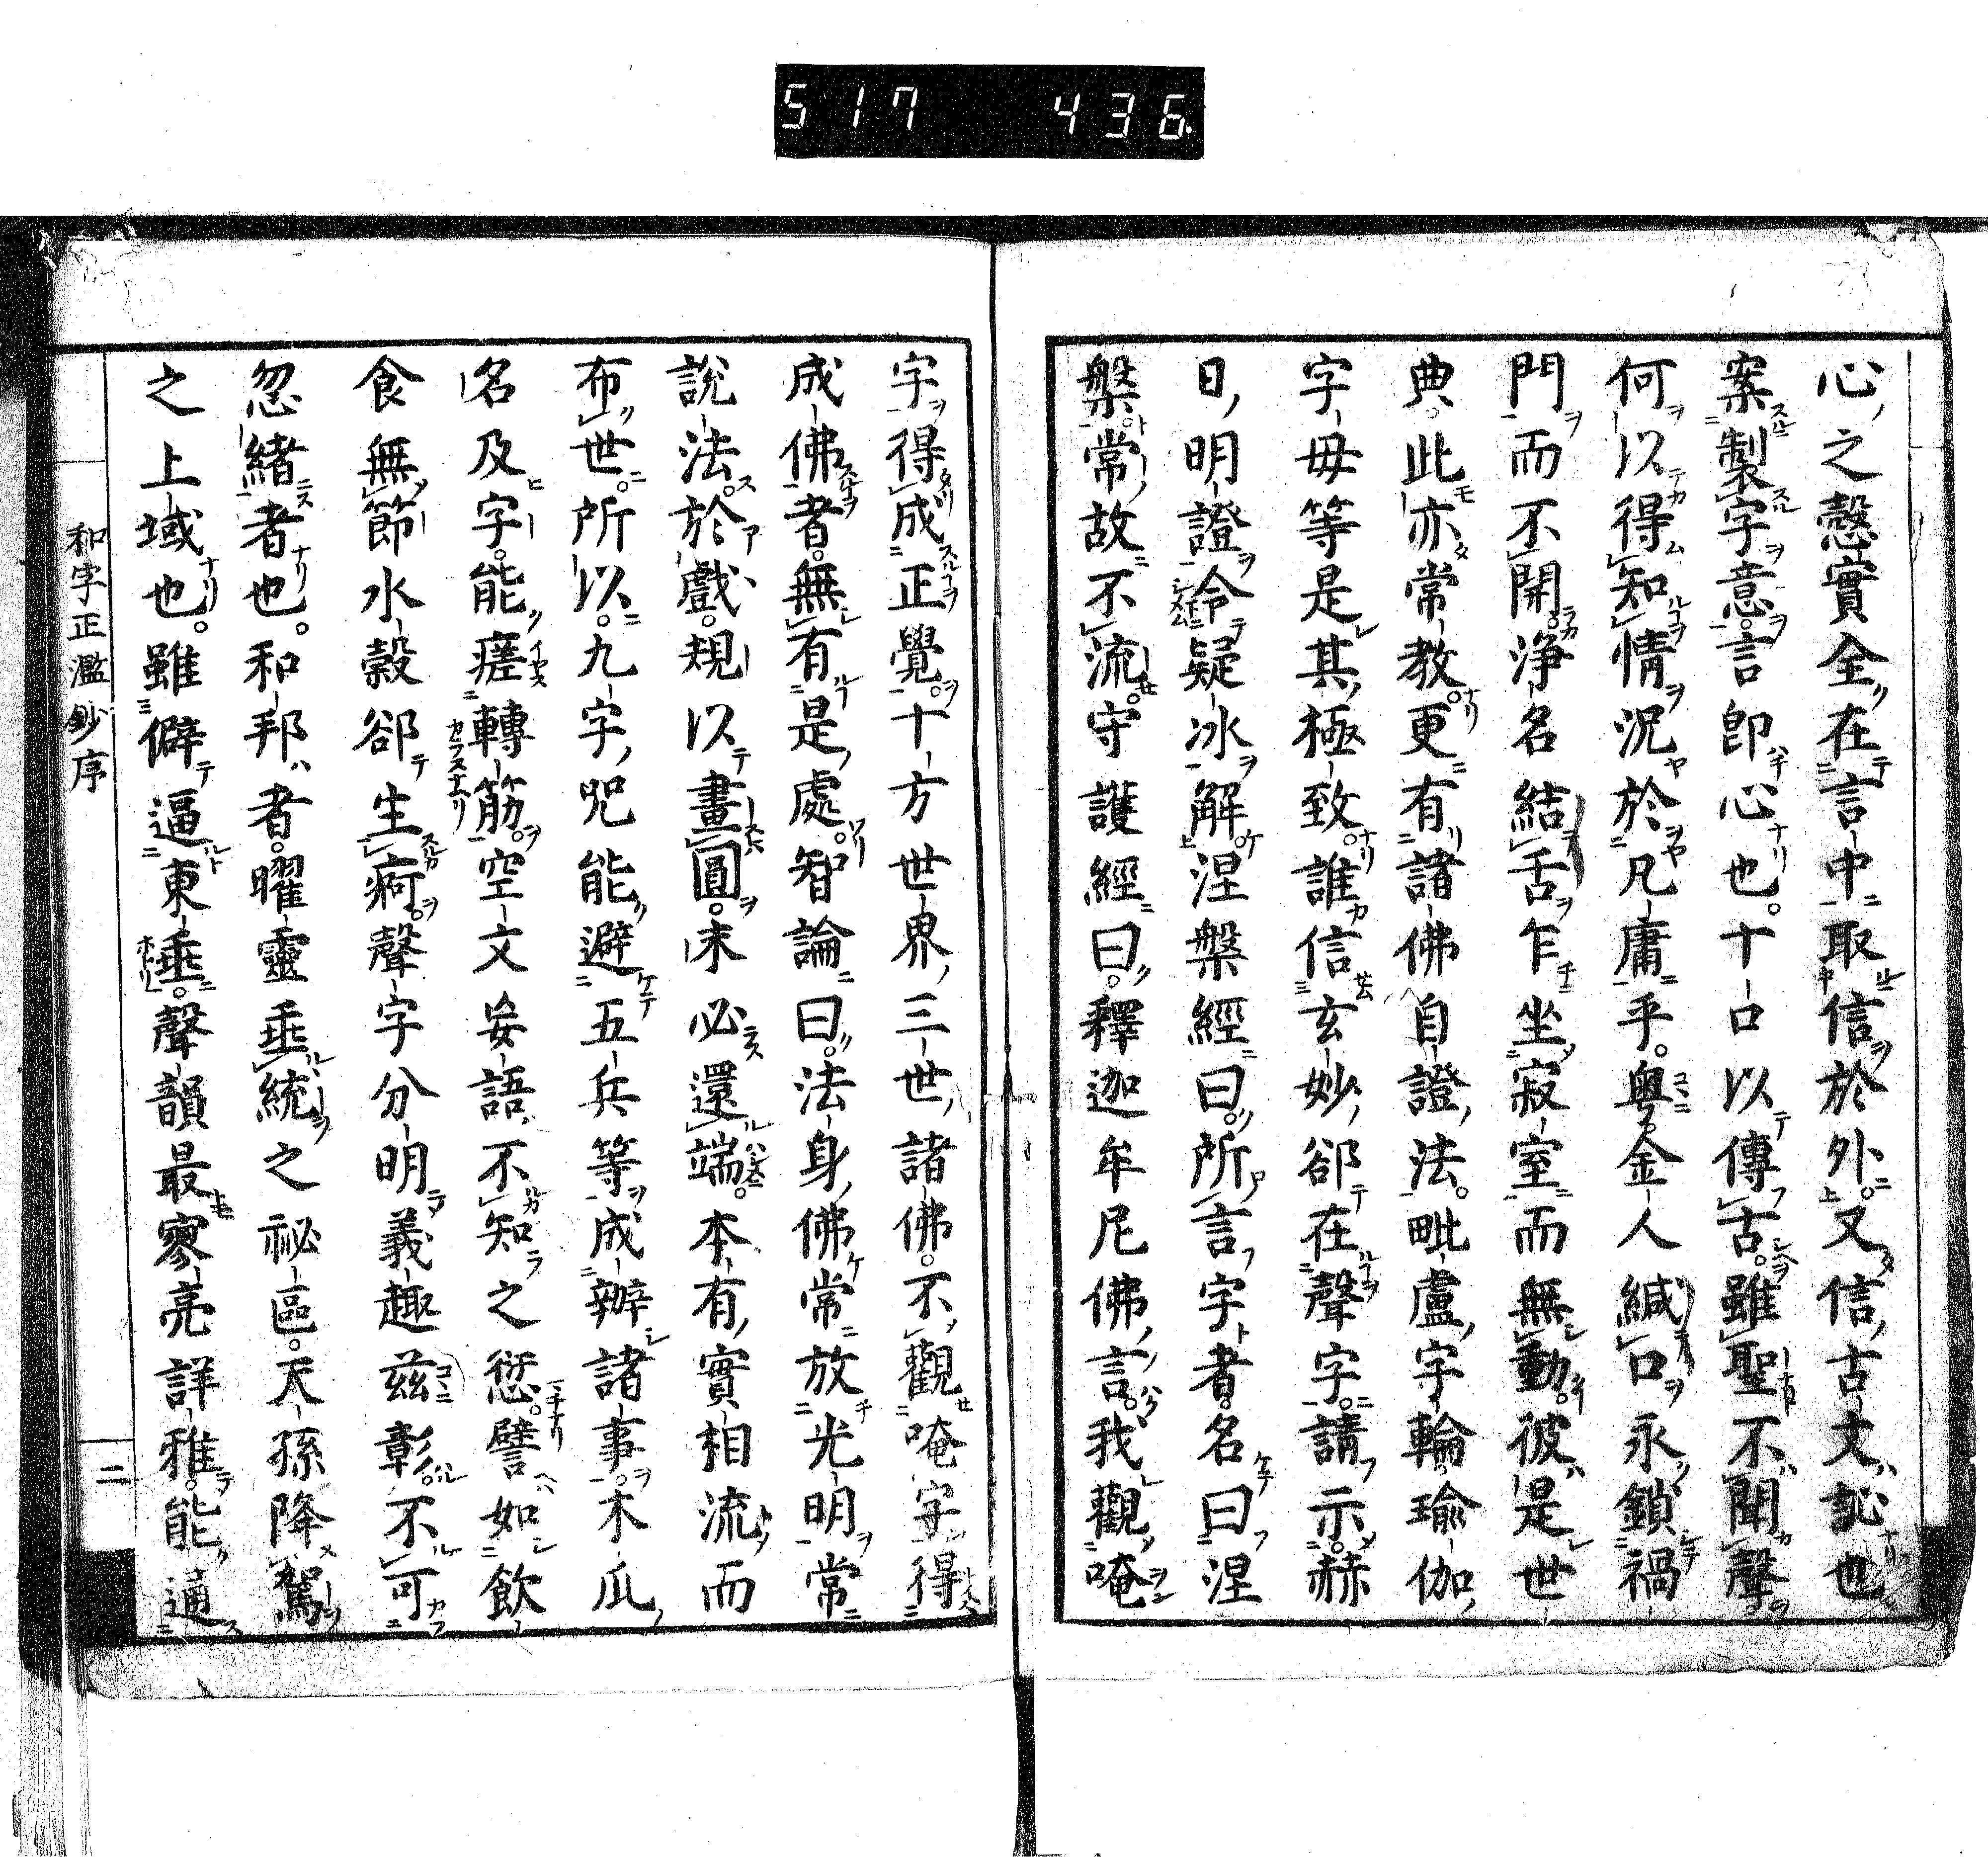 517 436
心之慤實全在言中取信於外又信古文訫也
案製字意言即心也十口以傳古雖聖不聞聲
何以得知情況於凡庸乎粤金人緘口永鎖禍
門而不開浄名結舌乍坐寂室而無動彼是世
典此亦常教更有諸佛自證法毗盧字輪瑜伽
字母等是其極致誰信玄妙郤在聲字請示赫
日明證令疑冰解涅槃經曰所言字者名曰涅
槃常故不流守護經曰釋迦牟尼佛言我觀唵
字得成正覺十方世界三世諸佛不觀唵字得
成佛者無有是處智論曰法身佛常放光明常
説法於戯規以畫圓未必還端本有實相流而
布世所以九字咒能避五兵等成辦諸事木瓜
名及字能瘥轉筋空文妄語不知之愆譬如飲
食無節水穀郤生痾聲字分明義趣茲彰不可
忽緒者也和邦者曜靈垂統之祕區天孫降駕
之上域也雖僻逼東垂聲韻最寥亮詳雅能通
和字正濫鈔序
二